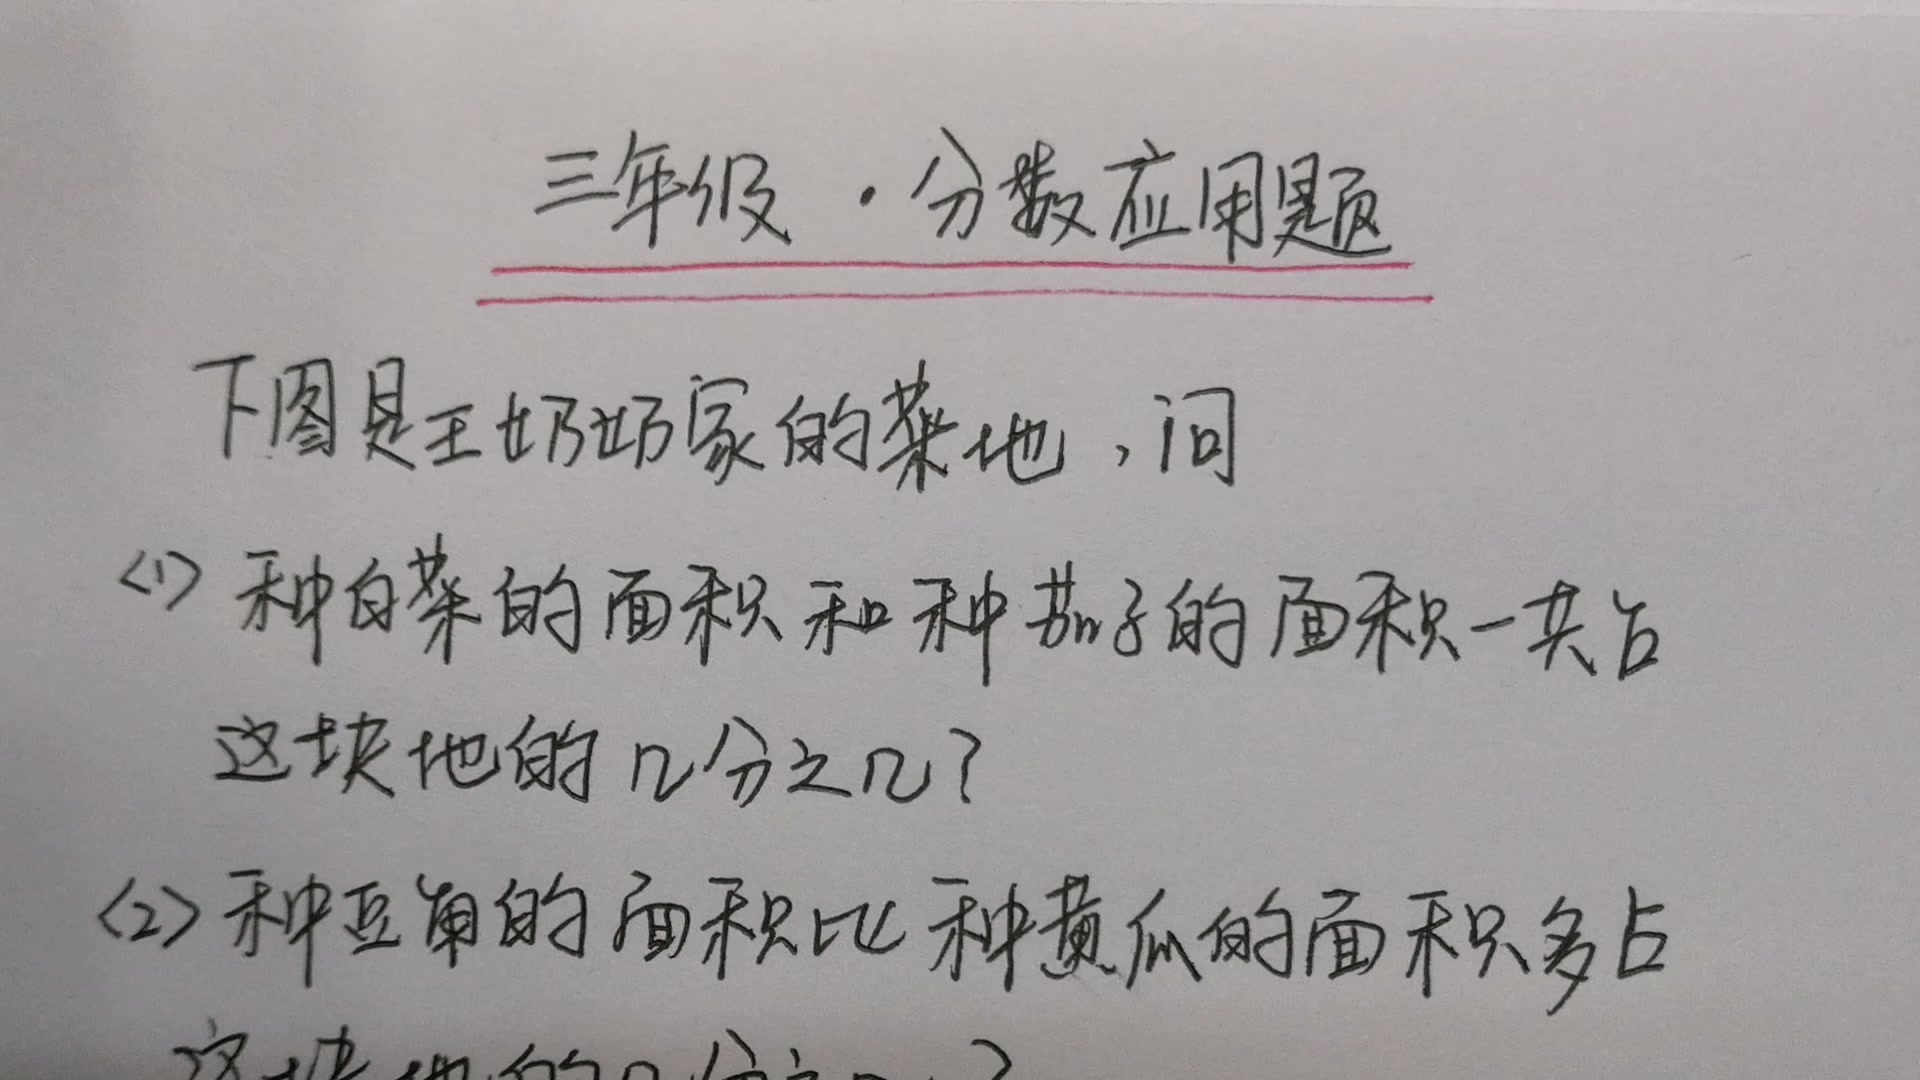 三年级·分数应用题
下图是王奶奶家的菜地，问
<1>种白菜的面积和种茄子的面积一共占
这块地的几分之几？
<2>种豆角的面积比种黄瓜的面积多占
这块地的几分之几？